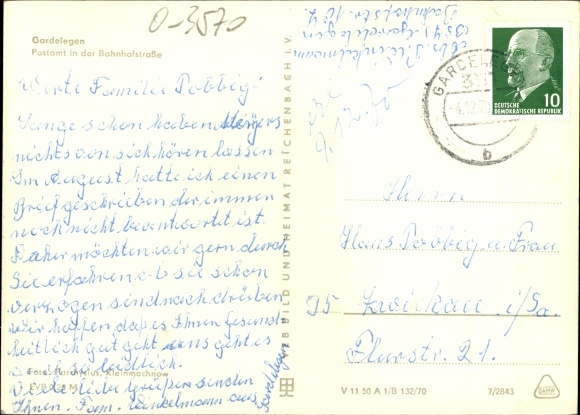 O-3570
Gardelegen
Postamt in der Bahnhofstraße
Werte Familie Pobbig!
Lange schon haben Meyers
nichts von sich hören lassen
Im August hatte ich einen
Brief geschrieben der immer
noch nicht beantwortet ist.
Daher möchten wir gern durch
Sie erfahren ob sie schon
verzogen sind nach drüben
Wir hoffen, dass es Ihnen gesund-
heitlich gut geht uns geht es
auch
Viele liebe Grüße senden
Ihnen Fam. Winkelmann aus
Gardelegen
Foto: Kleinmachnow
VEB BILD UND HEIMAT REICHENBACH I. V.
Abs. Winkelmann
3571 Gardelegen
Bahnhofstr.
GARDELEGEN
357
-4.12.70
b
DEUTSCHE
DEMOKRATISCHE REPUBLIK
10
Herrn
Hans Pobbig u. Frau
95 Zwickau i/Sa.
Flurstr. 21.
V 11 50 A 1/B 132/70 7/2843